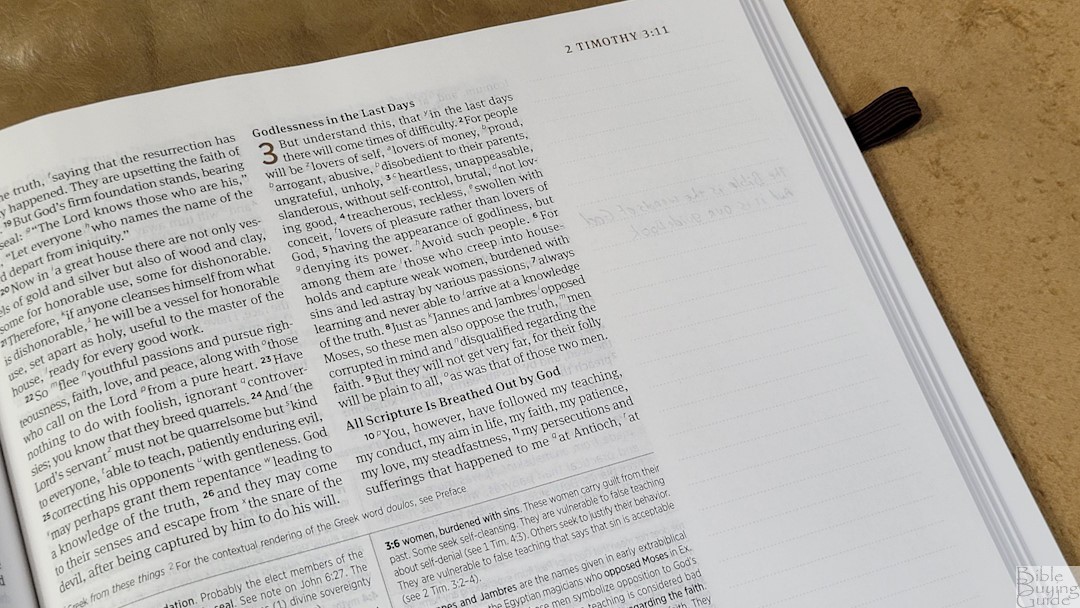 2 TIMOTHY 3:11
the truth, ʳsaying that the resurrection has
happened. They are upsetting the faith of
19 But God's firm foundation stands, bearing
seal: "The Lord knows those who are his,"
"Let everyone ʰwho names the name of the
depart from iniquity."
20 Now in ⁱa great house there are not only ves-
of gold and silver but also of wood and clay,
some for honorable use, some for dishonorable.
21 Therefore, ᵏif anyone cleanses himself from what
is dishonorable,¹ he will be a vessel for honorable
use, set apart as holy, useful to the master of the
house, ˡready for every good work.
22 So ᵐflee ⁿyouthful passions and pursue righ-
teousness, faith, love, and peace, along with ᵒthose
who call on the Lord ᵖfrom a pure heart. 23 Have
nothing to do with foolish, ignorant controver-
sies; you know that they breed quarrels. 24 And ʳthe
Lord's servant² must not be quarrelsome but ˢkind
to everyone, ᵗable to teach, patiently enduring evil,
25 correcting his opponents ᵘwith gentleness. God
ᵛmay perhaps grant them repentance ʷleading to
a knowledge of the truth, 26 and they may come
to their senses and escape from ˣthe snare of the
devil, after being captured by him to do his will.
Godlessness in the Last Days
3 But understand this, that ʸin the last days
there will come times of difficulty. 2 For people
will be ᶻlovers of self, ᵃlovers of money, ᵇproud,
ᵇarrogant, abusive, ᵇdisobedient to their parents,
ungrateful, unholy, 3 ᶜheartless, unappeasable,
slanderous, without self-control, brutal, ᵈnot lov-
ing good, 4 treacherous, reckless, ᵉswollen with
conceit, ᶠlovers of pleasure rather than lovers of
God, 5 having the appearance of godliness, but
ᵍdenying its power. ʰAvoid such people. 6 For
among them are ⁱthose who creep into house-
holds and capture weak women, burdened with
sins and led astray by various passions, 7 always
learning and never able to ʲarrive at a knowledge
of the truth. 8 Just as ᵏJannes and Jambres ˡopposed
Moses, so these men also oppose the truth, ᵐmen
corrupted in mind and ⁿdisqualified regarding the
faith. 9 But they will not get very far, for their folly
will be plain to all, ᵒas was that of those two men.
All Scripture Is Breathed Out by God
10 ᵖYou, however, have followed my teaching,
my conduct, my aim in life, my faith, my patience,
my love, my steadfastness, 11 my persecutions and
sufferings that happened to me ᵠat Antioch, ʳat
Greek from these things ² For the contextual rendering of the Greek word doulos, see Preface
Probably the elect members of the
seal. See note on John 6:27. The
(1) divine sovereignty
3:6 women, burdened with sins. These women carry guilt from their
past. Some seek self-cleansing. They are vulnerable to false teaching
about self-denial (see 1 Tim. 4:3). Others seek to justify their behavior.
They are vulnerable to false teaching that says that sin is acceptable
(see 2 Tim. 3:2–4).
and Jambres are the names given in early extrabiblical
the Egyptian magicians who opposed Moses in Ex-
men symbolize opposition to God's
teaching is considered bad.
regarding the faith
They
Bible
Buying
Guide